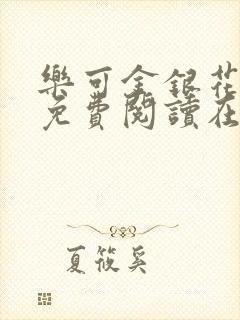 樂可金銀花
免費閱讀在
夏筱奚